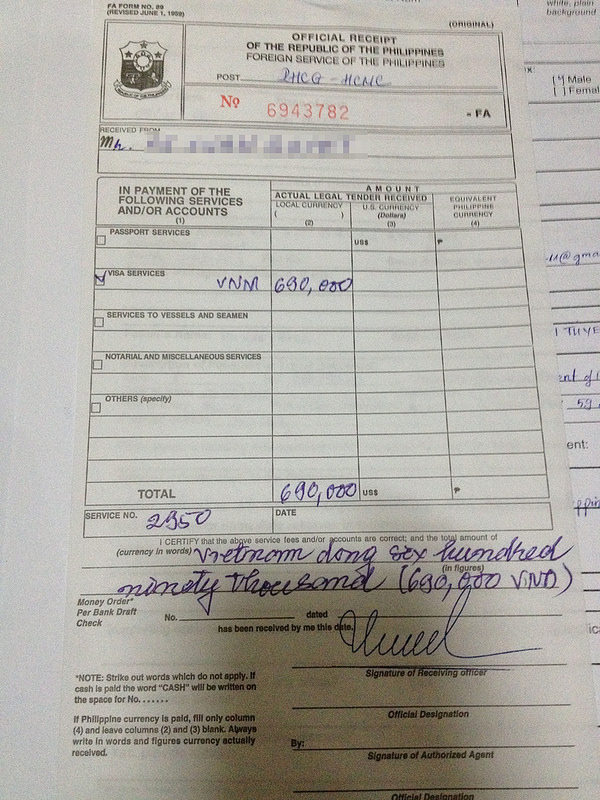 FA FORM NO. 99
(REVISED JUNE 1, 1959)
(ORIGINAL)
white, plain
background
OFFICIAL RECEIPT
OF THE REPUBLIC OF THE PHILIPPINES
FOREIGN SERVICE OF THE PHILIPPINES
POST PHCG - HCMC
No 6943782 - FA
Male
[ ] Femal
RECEIVED FROM
Mr.
IN PAYMENT OF THE
FOLLOWING SERVICES
AND/OR ACCOUNTS
(1)
AMOUNT
ACTUAL LEGAL TENDER RECEIVED
LOCAL CURRENCY
( )
(2)
U.S. CURRENCY
(Dollars)
(3)
EQUIVALENT
PHILIPPINE
CURRENCY
(4)
PASSPORT SERVICES
US$ ₱
VISA SERVICES VNM 690,000
SERVICES TO VESSELS AND SEAMEN
NOTARIAL AND MISCELLANEOUS SERVICES
OTHERS (specify)
TOTAL 690,000 US$ ₱
SERVICE NO. 2950 DATE
I CERTIFY that the above service fees and/or accounts are correct; and the total amount of
(currency in words) Vietnam dong sex hundred
(in figures)
ninety thousand (690,000 VND)
Money Order*
Per Bank Draft
Check
No. dated
has been received by me this date.
Signature of Receiving officer
*NOTE: Strike out words which do not apply. If
cash is paid the word "CASH" will be written on
the space for No.......
Official Designation
If Philippine currency is paid, fill only column
(4) and leave columns (2) and (3) blank. Always
write in words and figures currency actually
received.
By:
Signature of Authorized Agent
Official Designation
@gma
TUYE
ent of
59
ent: